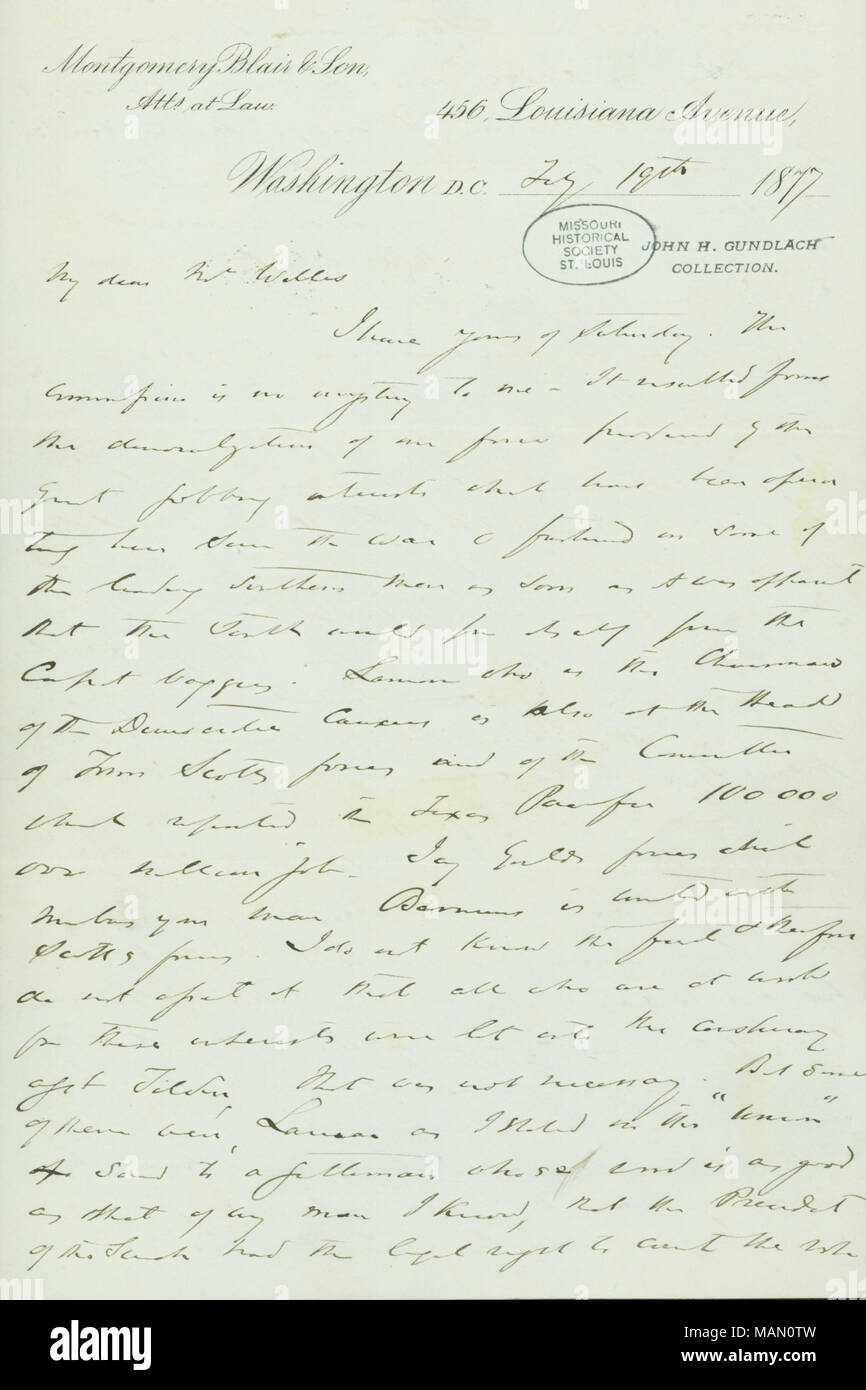 Montgomery Blair & Son,
Atts. at Law.
456, Louisiana Avenue,
Washington D.C. Feby 19th 1877
MISSOURI
HISTORICAL
SOCIETY
ST. LOUIS
JOHN H. GUNDLACH
COLLECTION.
My dear Mr Welles
I have yours of Saturday. The
is no mystery to me - It resulted from
the demoralization of our force produced by the
Great jobbing interests which have been opera
ting here since the War & fastened on some of
the leading Southern men as soon as it was apparent
that the South would free itself from the
Carpet baggers. Lamar who is the Chairman
of the Democratic Caucus is also at the Head
of Tom Scotts forces and of the Committee
which reported the Texas Pacific 100 000
000 million job - Jay Goulds forces which
numbers your man Barnum is united with
Scotts forces. I do not know the fact & therefore
do not assert it that all who are at work
for these interests were let into the conspiracy
agst Tilden, that was not necessary. But some
of them were, Lamar as I stated in the "Union"
said to a gentleman whose word is as good
as that of any man I know, that the President
of the Senate had the legal right to count the vote
alamy
Image ID: MAN0TW
www.alamy.com